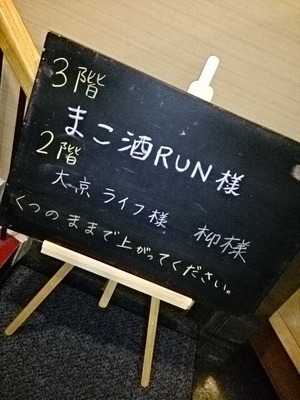 3階
まこ酒RUN様
2階
大京ライフ様 柳様
くつのままで上がってください。